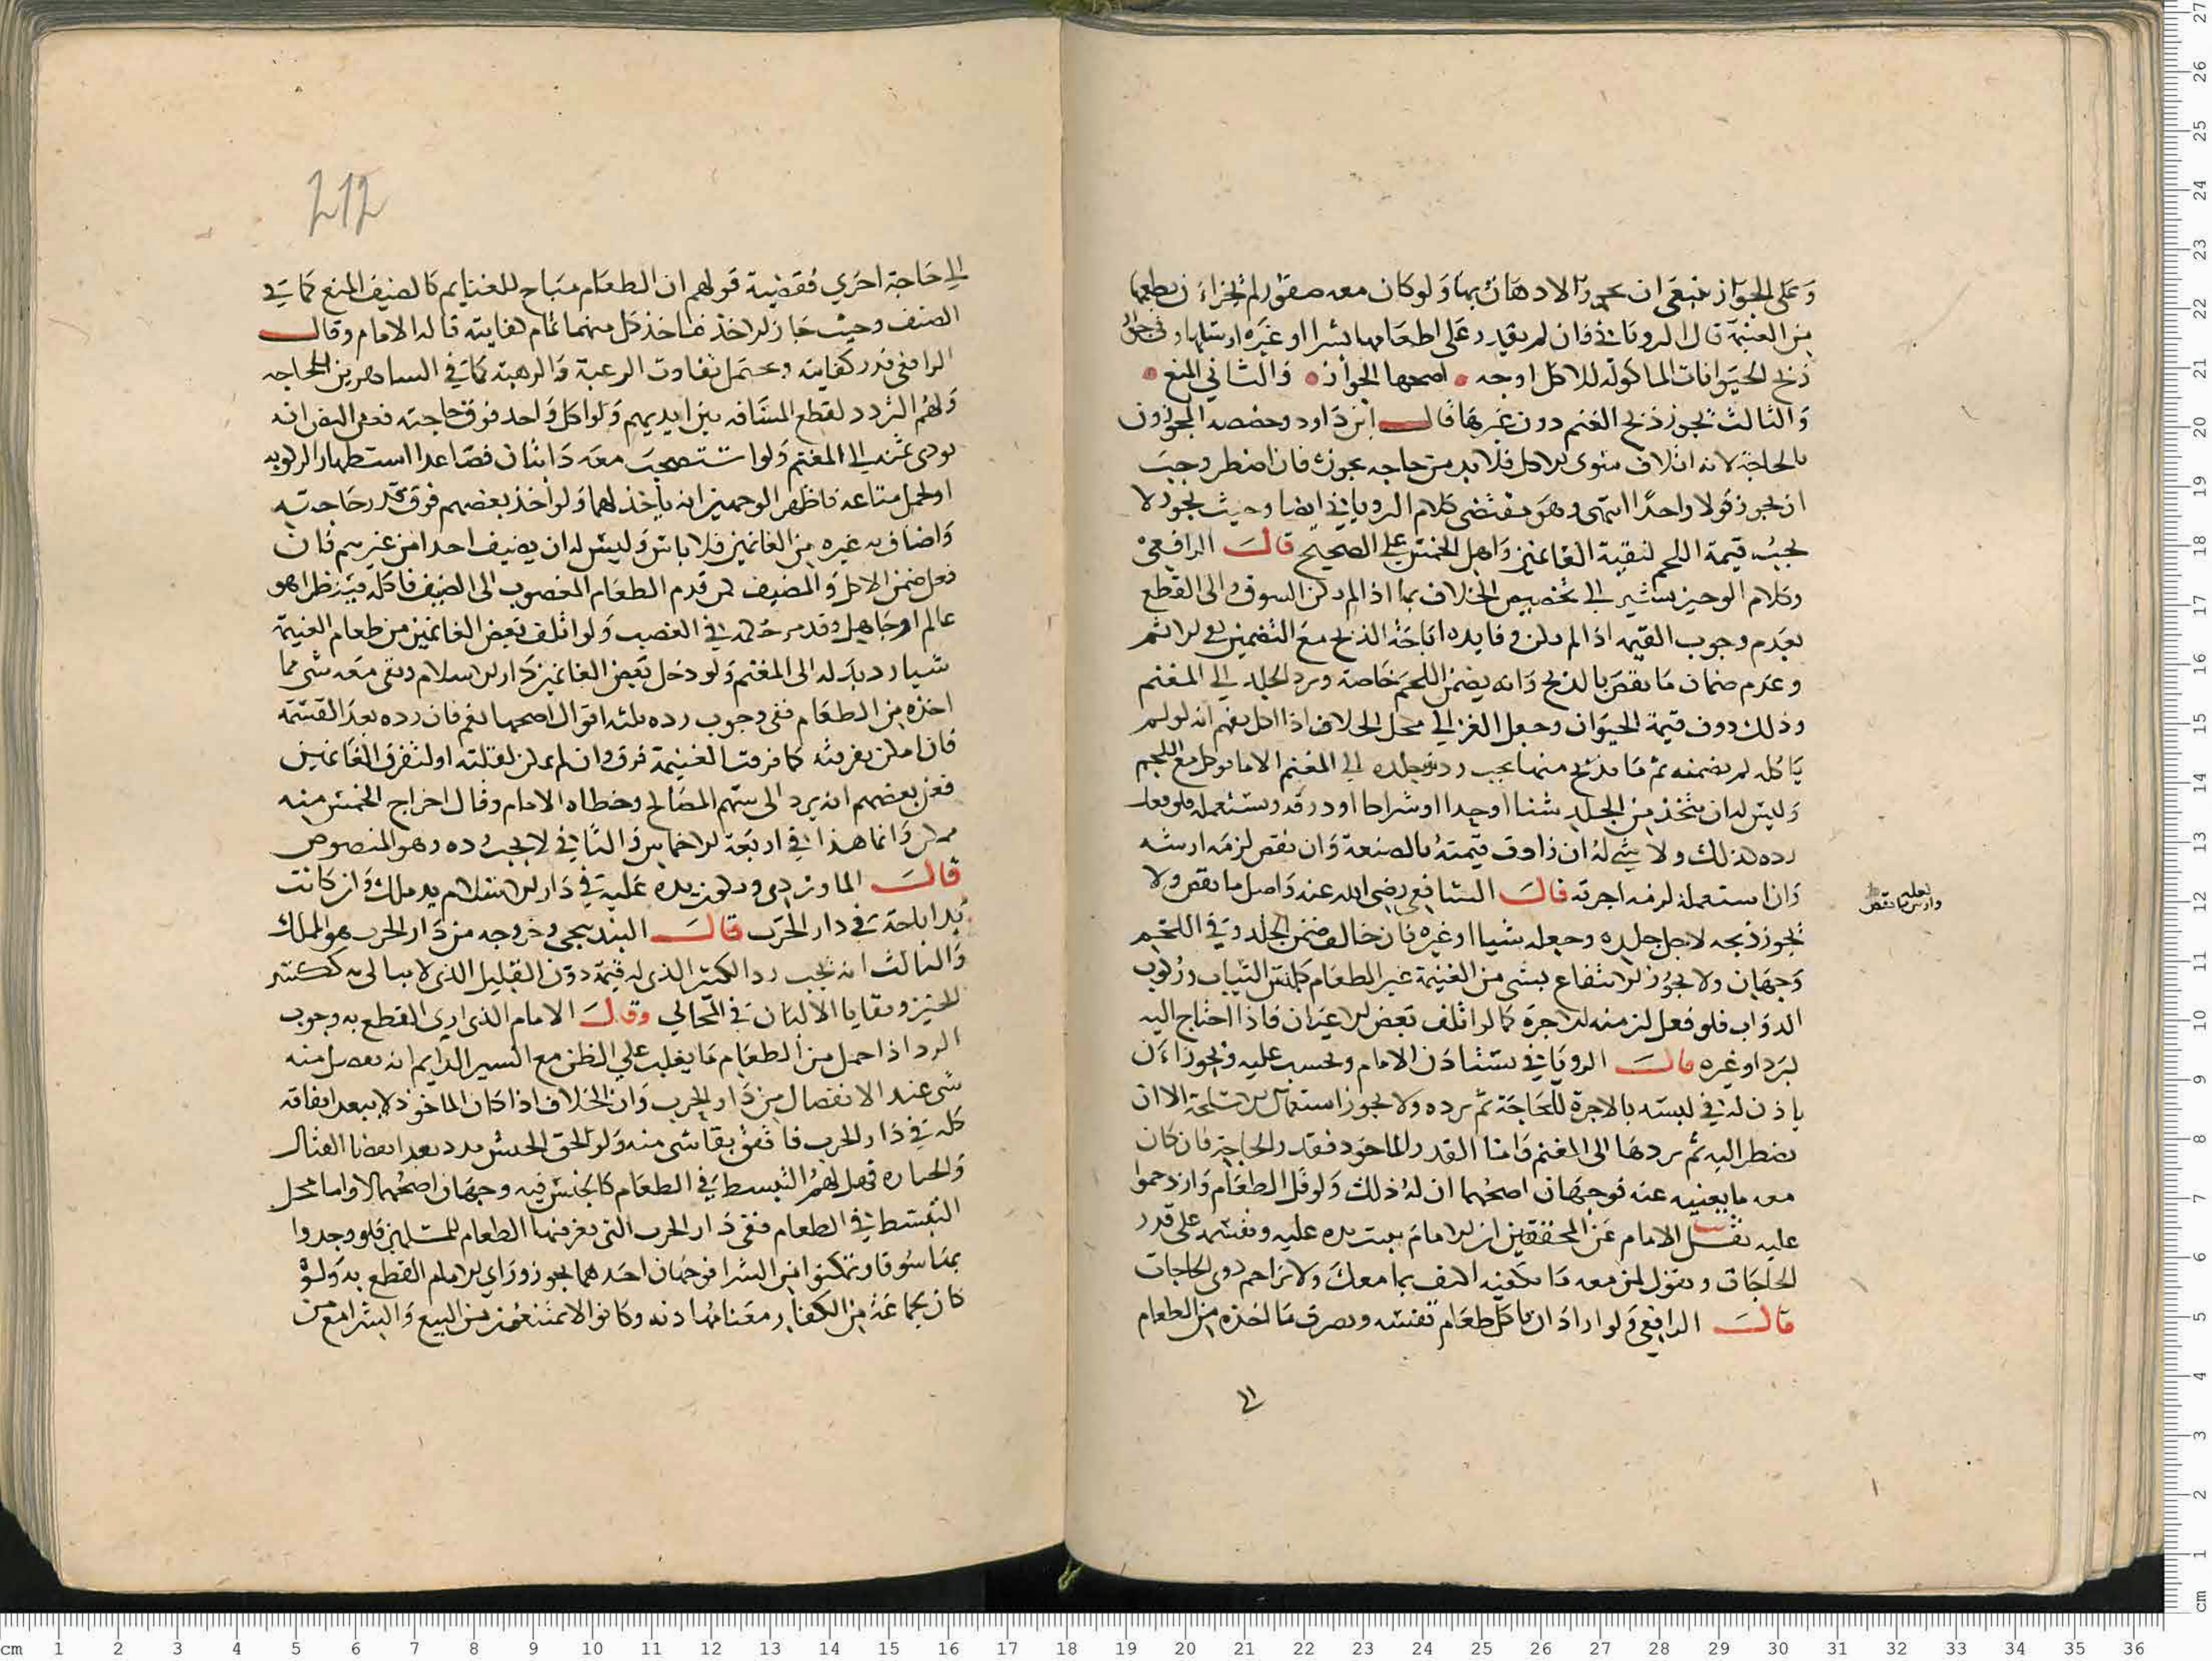 وعلى الجواز ينبغي ان يجوز الادهان بها ولو كان معه صقور لم يجز اءن يطعمها
من الغنيمة قال الروياني فان لم يقدر على اطعامها بشرا او غيره ارسلها وفي جواز
ذبح الحيوانات الماكولة للاكل اوجه اصحها الجواز والثاني المنع
والثالث يجوز ذبح الغنم دون غيرها قال ابن داود وخصصه المجوزون
بالحاجة لانه اتلاف منوي للاكل فلابد من حاجه تجوزه فان اضطر وجب
ان يجوز قولا واحدا انتهى وهو مقتضى كلام الروياني ايضا وحيث يجوز لا
يجب قيمة اللحم لبقية الغانمين واهل الخمس على الصحيح قال الرافعي
وكلام الوجيز يشير الى تخصيص الخلاف بما اذا لم يكن السوق والى القطع
بعدم وجوب القيمه اذا لم يمكن وفايده اباحة الذبح مع التضمين نفي الاثم
وعدم ضمان ما نقص بالذبح وانه يضمن اللحم خاصة ويرد الجلد الى المغنم
وذلك دون قيمة الحيوان وجعل الغزالي محل الخلاف اذا اكل يفهم انه لو لم
ياكله لم يضمنه ثم ما يذبح منها يجب رد جلده الى المغنم الا ما يوكل مع اللحم
وليس له ان يتخذ من الجلد شنا او حذا او شراكا او درقه ويستعمله فلو فعل
رده كذلك ولا شي له ان زادت قيمته بالصنعة وان نقص لزمه ارشه
وان استعمله لزمه اجرته قال الشافعي رضي الله عنه واصل ما نقص ولا
يجوز ذبحه لاجل جلده وجعله شيا او غيره فان خالف ضمن الجلد وفي اللحم
وجهان ولا يجوز الانتفاع بشي من الغنيمة غير الطعام كلبس الثياب وركوب
الدواب فلو فعل لزمنه الاجرة كما لو اتلف بعض الاعيان فاذا احتاج اليه
لبرد او غيره قال الروياني يستاذن الامام ويحسب عليه ويجوز اءن
ياذن له في لبسه بالاجرة للحاجة ثم يرده ولا يجوز استعمال الاسلحة الا ان
يضطر اليه ثم يردها الى المغنم واما القدر الماخود فقدر الحاجة فان كان
معه ما يغنيه عنه فوجهان اصحهما ان له ذلك ولو قل الطعام وازدحموا
عليه نقل الامام عن المحققين ان الامام يثبت يده عليه ويقسمه على قدر
الحاجات ويقول لمن معه ما يكفيه اكتف بما معك ولا تزاحم ذوي الحاجات
قال الرافعي ولو اراد ان ياكل طعام نفسه ويصرف ما اخذه من الطعام
الى
لعله
وارش ما نقص
212
الى حاجة اخري فقضية قولهم ان الطعام مباح للغنايم كالضيف المنع كما في
الضيف وحيث جاز الاخذ فياخذ كل منهما تمام كفايته قاله الامام وقال
الرافعي قدر كفايته ويحتمل تفاوت الرغبة والرهبة كما في المسافرين للحاجه
ولهم التزود لقطع المسافه بين ايديهم ولو اكل واحد فوق حاجته فعن النص انه
يودي ثمنه الى المغنم ولو استصحب معه دابتان فصاعدا استظهارا لركوبه
او لحمل متاعه فاظهر الوجهين انه ياخذ لهما ولو اخذ بعضهم فوق قدر حاجته
واضاف به غيره من الغانمين فلا باس وليس له ان يضيف احدا من غيرهم فان
فعل ضمن الاكل والمضيف كمن قدم الطعام المغصوب الى الضيف فاكله فينظر اهو
عالم او جاهل وقد مر حكمه في الغصب ولو اتلف بعض الغانمين من طعام الغنيمة
شيا رد بدله الى المغنم ولو دخل بعض الغانمين دار الاسلام وبقي معه شي مما
اخذه من الطعام ففي وجوب رده ثلثه اقوال اصحها نعم فان رده بعد القسمة
فان امكن تفرقته كما فرقت الغنيمة فرق وان لم يمكن لقلته او لتفرق الغانمين
فعن بعضهم انه يرد الى سهم المصالح وخطاه الامام وقال اخراج الخمس منه
ممكن وانما هذا في اربعة الاخماس والثاني لا يجب رده وهو المنصوص
قال الماوردي وتكون يده عليه في دار الاسلام يد ملك وان كانت
يد اباحة في دار الحرب قال البندنيجي وخروجه من دار الحرب هو المملك
والثالث انه يجب رد الكثير الذي له قيمة دون القليل الذي لا يبالى به ككسر
الخبز وبقايا الالبان في المخالي وقال الامام الذي ارى القطع به وجوب
الرد اذا حمل من الطعام ما يغلب علي الظن مع السير الدايم انه يفضل منه
شي عند الانفصال من دار الحرب وان الخلاف اذا كان الماخوذ لا يبعد انفاقه
كله في دار الحرب فاتفق بقا شي منه ولو لحق الجيش مدد بعد انقضا القتال
والحيازه فهل لهم التبسط في الطعام كالجيش فيه وجهان اصحهما لا واما محل
التبسط في الطعام ففي دار الحرب التي يعز فيها الطعام للمسلمين فلو وجدوا
بمنا سوقا وتمكنوا من الشرا فوجهان احدهما يجوز وراي الامام القطع به ولو
كان جماعة من الكفار معنا مهادنه وكانوا لا يمتنعون من البيع والشرا مع من